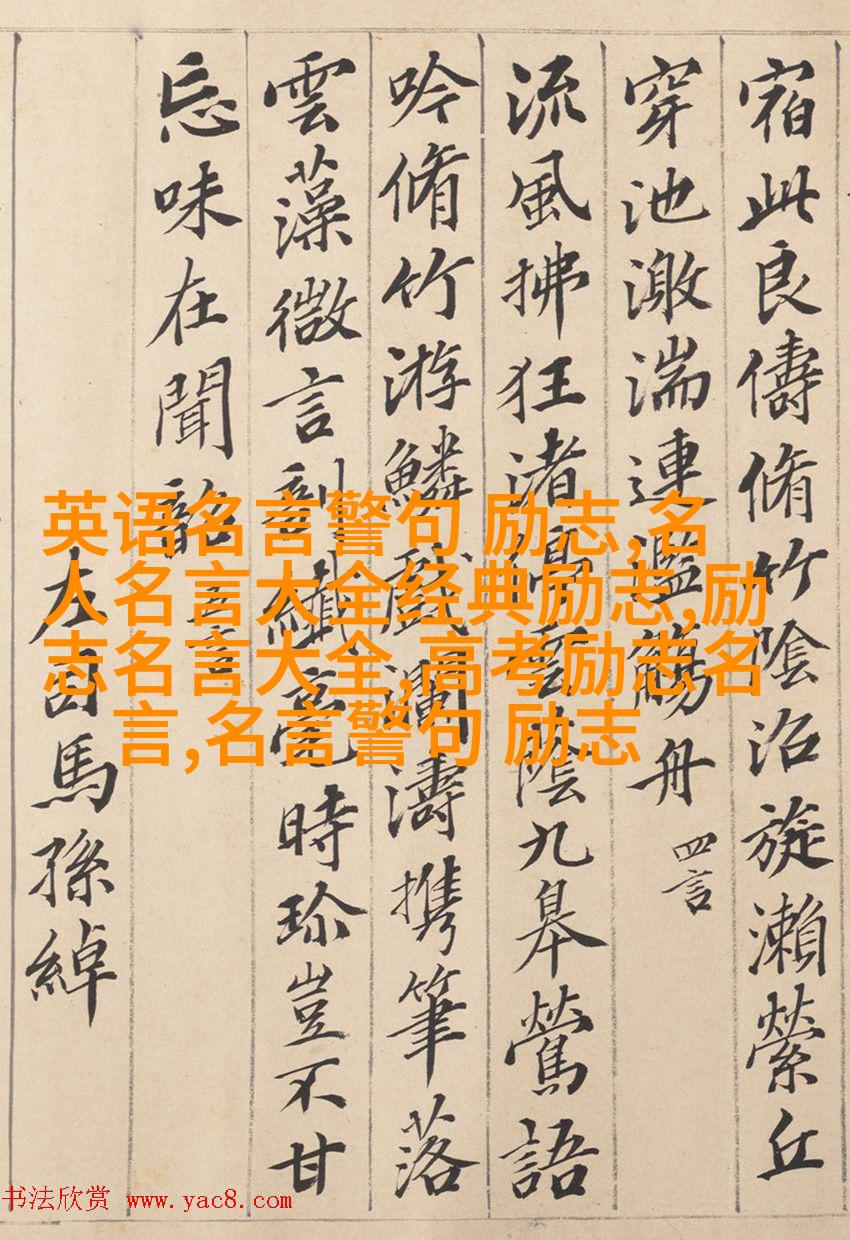 宿此良儔脩竹陰沼旋瀨縈丘
穿池激湍連濫觴舟
四言
流風拂枉渚停雲蔭九皋鶯語
吟脩竹游鱗戲瀾濤攜筆落
雲藻微言剖纖毫時珍豈不甘
忘味在聞韶
五言
左司馬孫綽
英语名言警句 励志,名
人名言大全经典励志,励
志名言大全,高考励志名
言,名言警句 励志
书法欣赏 www.yac8.com